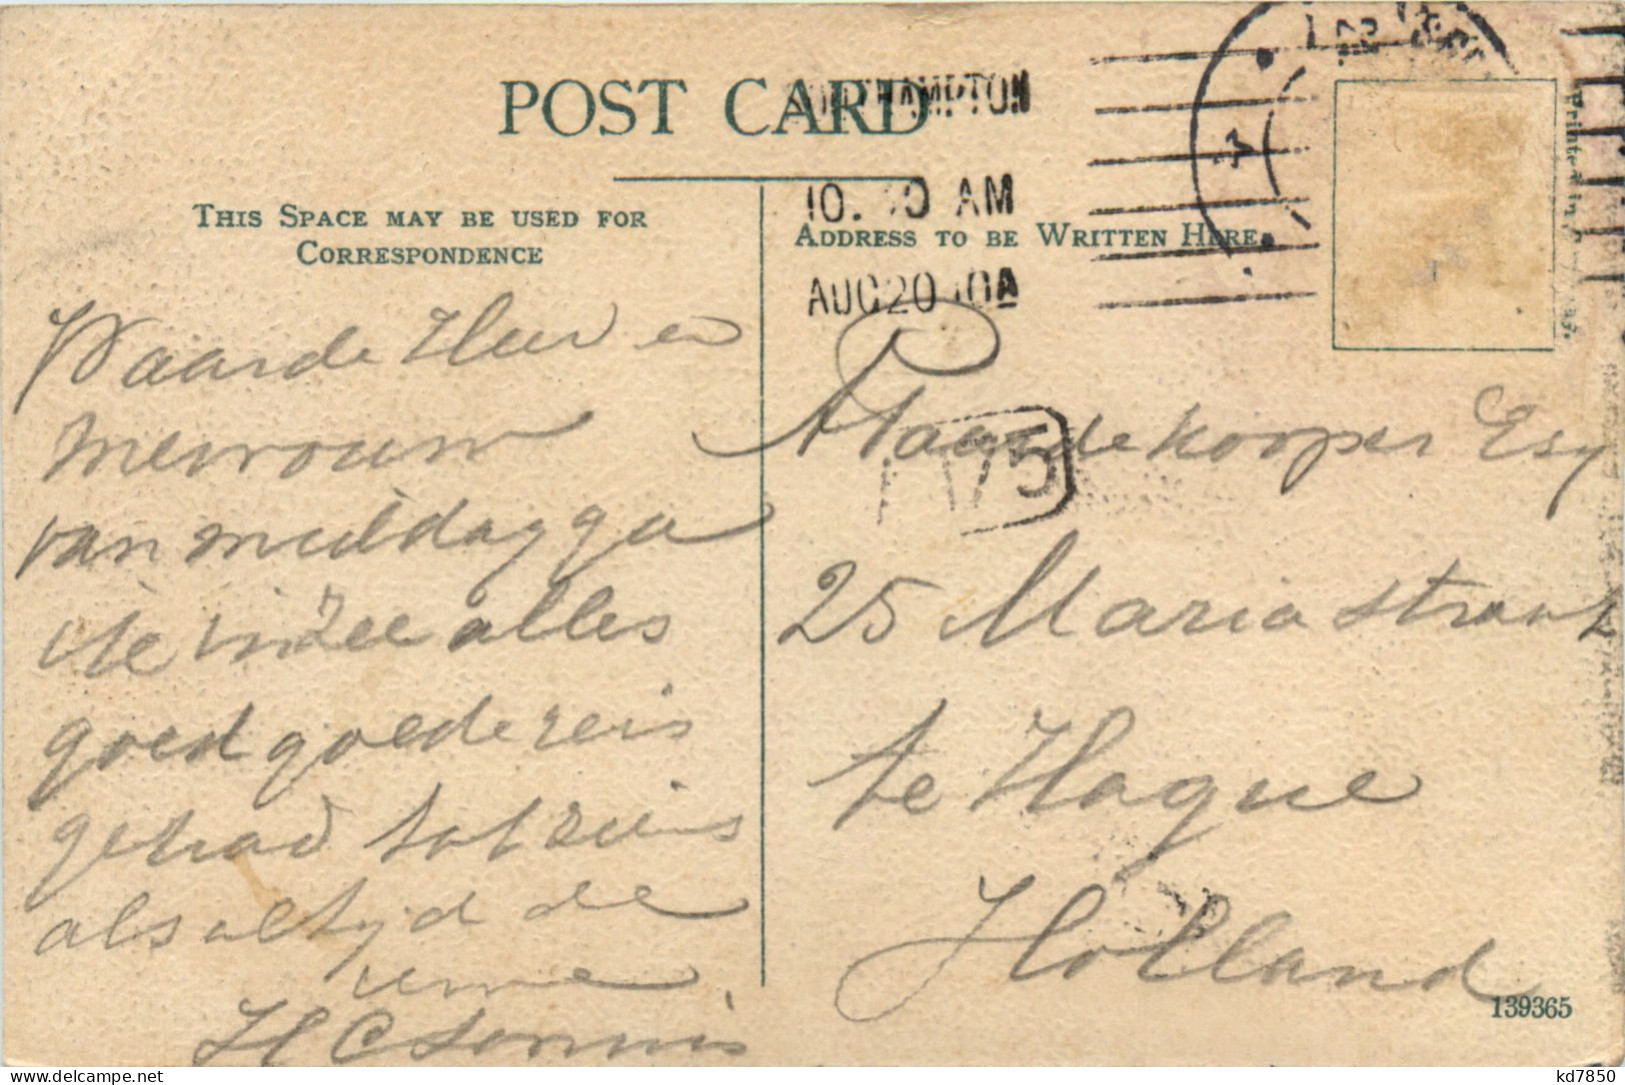 POST CARD
THIS SPACE MAY BE USED FOR
CORRESPONDENCE
ADDRESS TO BE WRITTEN HERE.
AM
AUG 20 10A
Waarde Heer en
mevrouw
van middag ga
ik in Zee alles
goed goede reis
gehad tot ziens
als altyd de
uwe
H C
175
Paardekooper Esq
25 Maria straat
te Hague
Holland
139365
Printed in
kd7850